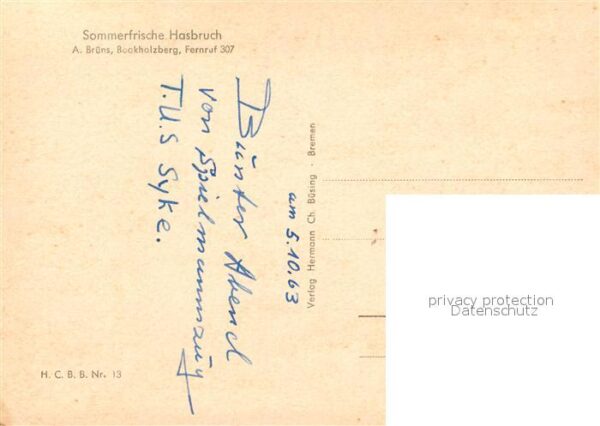 Sommerfrische Hasbruch
A. Brüns, Bookholzberg, Fernruf 307
Bunter Abend
von Spielmannzug
T.U.S Syke.
am 5.10.63
Verlag Hermann Ch. Büsing · Bremen
H. C. B. B. Nr. 13
privacy protection
Datenschutz